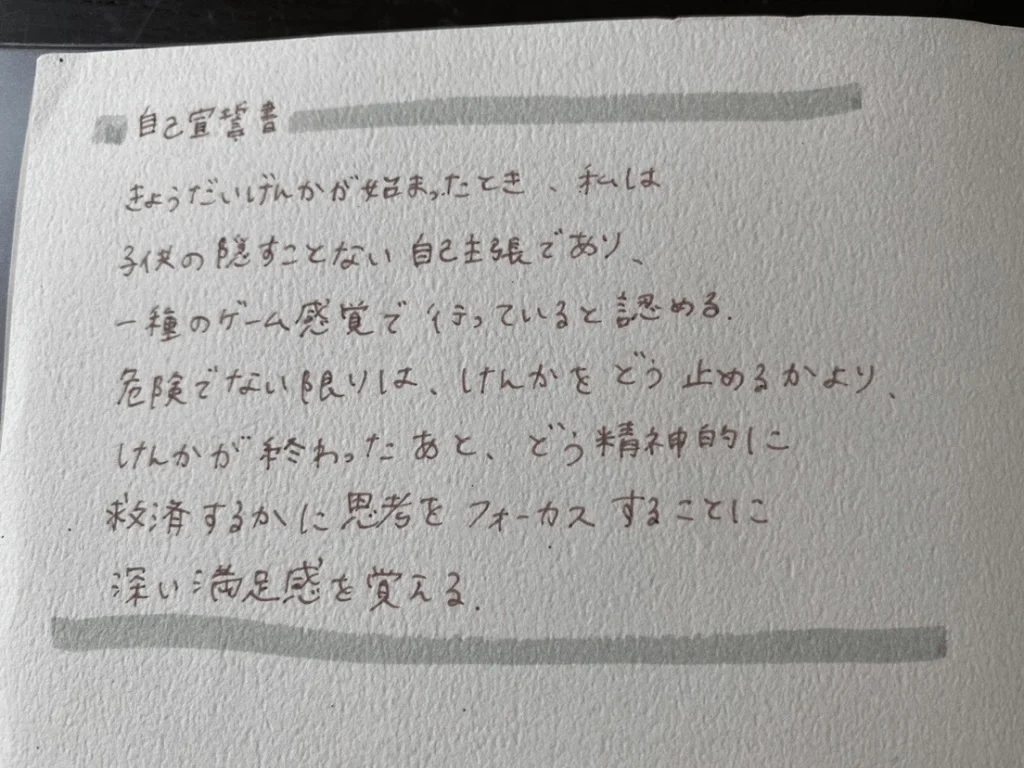 自己宣誓書
きょうだいげんかが始まったとき、私は
子供の隠すことない自己主張であり、
一種のゲーム感覚で行っていると認める.
危険でない限りは、けんかをどう止めるかより、
けんかが終わったあと、どう精神的に
救済するかに思考をフォーカスすることに
深い満足感を覚える.